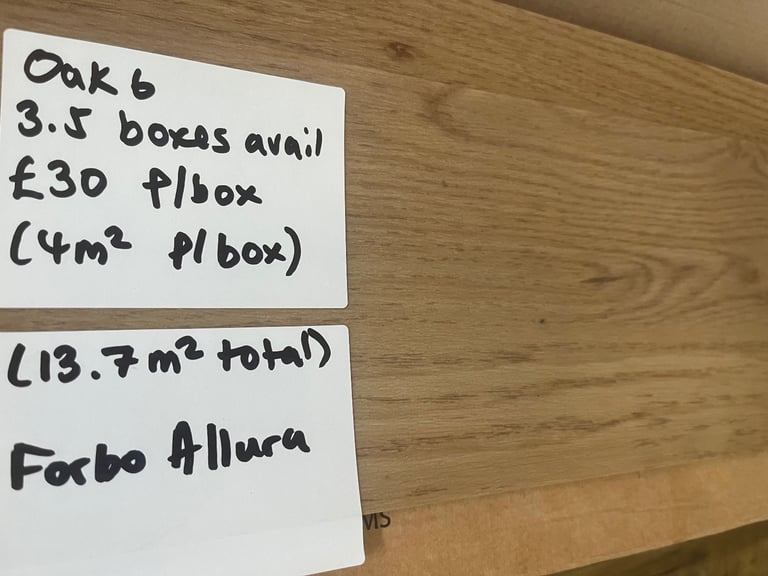 Oak 6
3.5 boxes avail
£30 p/box
(4m² p/box)
(13.7m² total)
Forbo Allura
MS